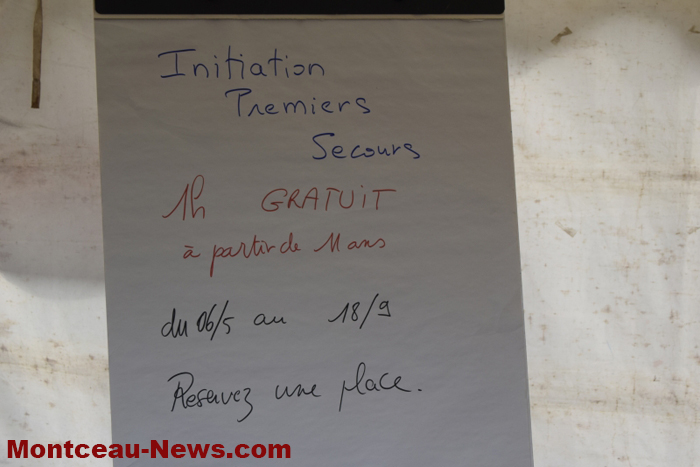 Initiation
Premiers
Secours
1h GRATUIT
à partir de 11 ans
du 06/5 au 18/9
Reservez une place.
Montceau-News.com